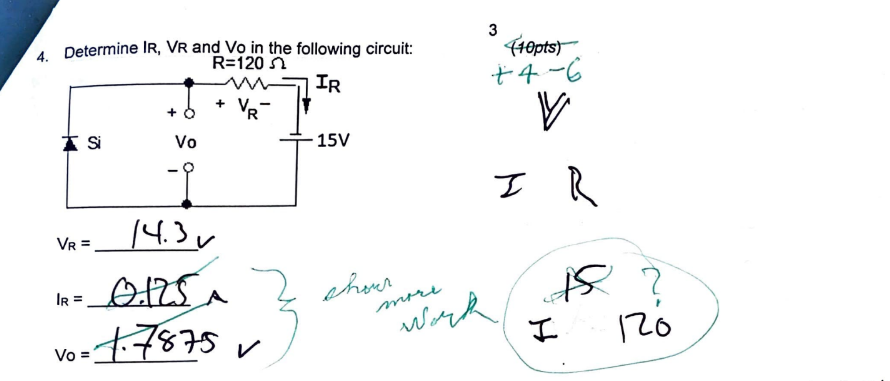 3
(10pts)
+4 -6
4. Determine IR, VR and Vo in the following circuit:
R=120 Ω
IR
+ VR -
+
Si
Vo
15V
-
V
I R
VR = 14.3 v
IR = 0.125 A
Vo = 1.7875 v
show
more
work
15 ?
I 120